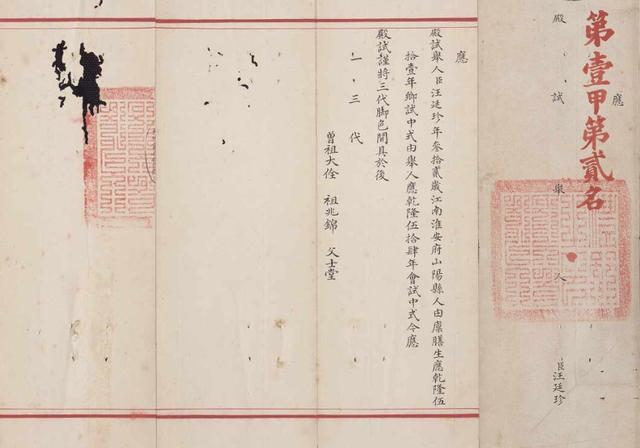 第壹甲第貳名
應
殿試舉人臣汪廷珍
應
殿試舉人臣汪廷珍年叁拾貳歲江南淮安府山陽縣人由廩膳生應乾隆伍
拾壹年鄉試中式由舉人應乾隆伍拾肆年會試中式今應
殿試謹將三代脚色開具於後
一三代
曾祖大佺 祖兆錦 父士堂